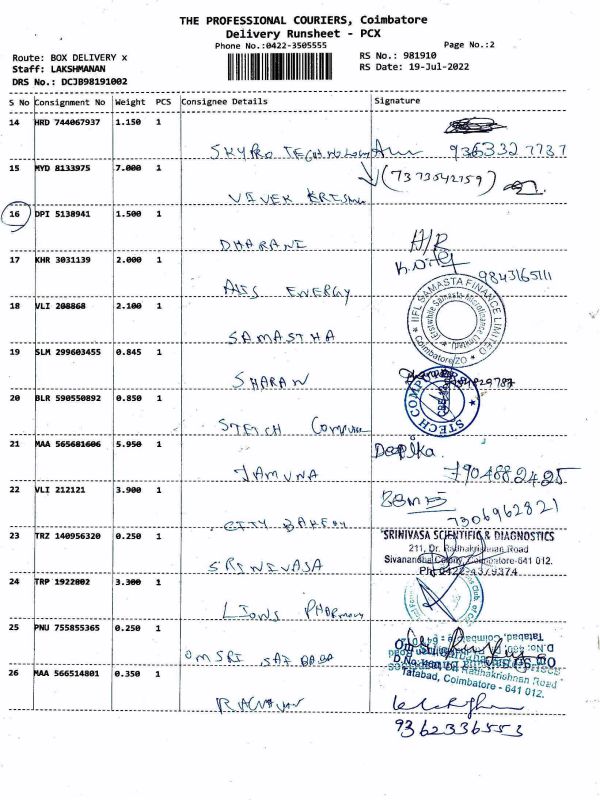 THE PROFESSIONAL COURIERS, Coimbatore
Delivery Runsheet - PCX
Phone No.:0422-3505555
Page No.:2
Route: BOX DELIVERY x
RS No.: 981910
Staff: LAKSHMANAN
RS Date: 19-Jul-2022
DRS No.: DCJB98191002
S No Consignment No Weight PCS Consignee Details Signature
14 HRD 744067937 1.150 1
SKYPRO TECHNOLOGY 9363327737
15 MYD 8133975 7.000 1
(7373042759)
VIVEK KRISHNA
16 DPI 5138941 1.500 1
DHARANI H/R
17 KHR 3031139 2.000 1
9843165111
ENERGY
18 VLI 208868 2.100 1
IIFL SAMASTA FINANCE LIMITED
(Erstwhile Samasta Microfinance Limited)
Coimbatore/ZO
SAMASTHA
19 SLM 299603455 0.845 1
SHARAN
20 BLR 590550892 0.850 1
STECH COMPUTERS
STETCH Computer
21 MAA 565681606 5.950 1
Deepika
JAMUNA 7904882425
22 VLI 212121 3.900 1
CITY BAKERY 7306962821
23 TRZ 140956320 0.250 1
SRINIVASA SCIENTIFIC & DIAGNOSTICS
211, Dr. Radhakrishnan Road
Sivanandha Colony, Coimbatore-641 012.
Ph: 0422-4379374
SRINIVASA
24 TRP 1922802 3.300 1
LIONS PHARMACY
25 PNU 755855365 0.250 1
OM SRI SAI BABA
Tatabad, Coimbatore - 641 012.
26 MAA 566514801 0.350 1
RAGHAVAN
9362336553